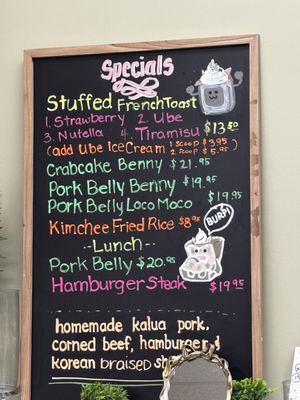 Specials
Stuffed FrenchToast
1. Strawberry 2. Ube
3. Nutella 4. Tiramisu $13.50
(add Ube Ice Cream 1 scoop $3.95
2 scoop $5.95)
Crabcake Benny $21.95
Pork Belly Benny $19.95
Pork Belly Loco Moco $19.95
Kimchee Fried Rice $8.95
BURP!
--Lunch--
Pork Belly $20.95
Hamburger Steak $19.95
homemade kalua pork,
corned beef, hamburger &
korean braised